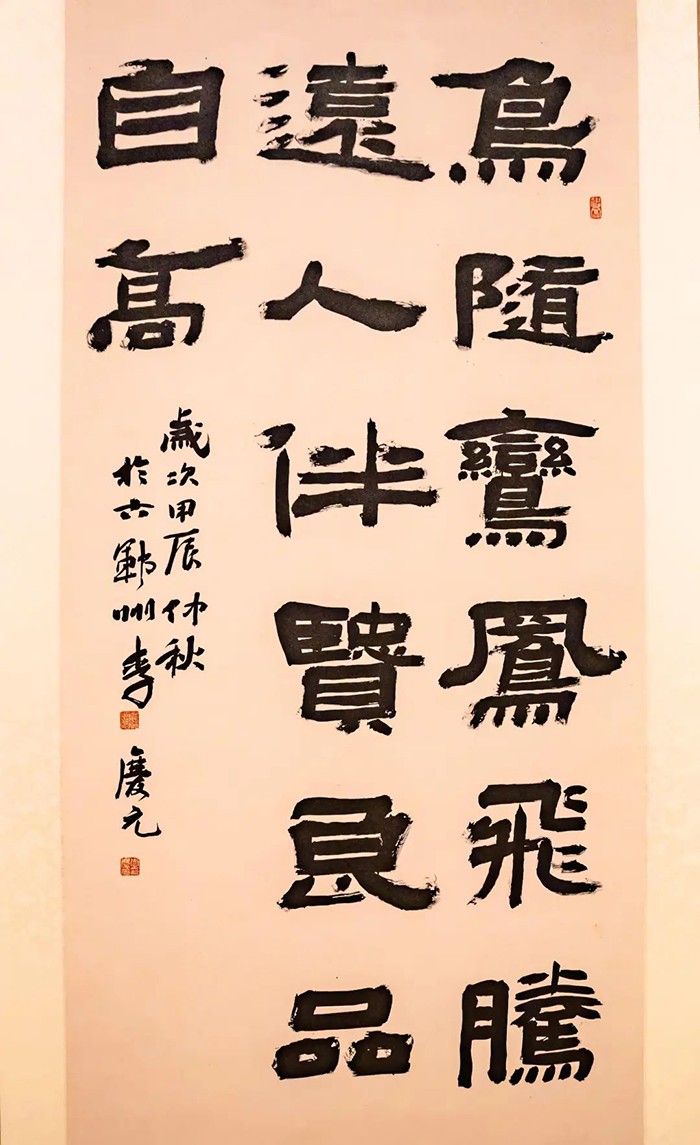 鳥隨鸞鳳飛騰
遠人伴賢良品
自高
歲次甲辰仲秋
於古鄆州李慶元